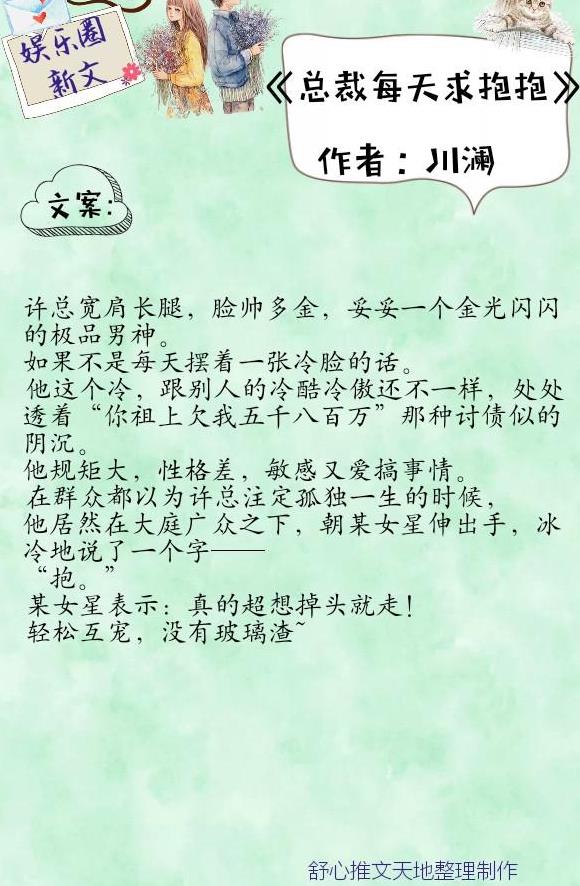 娱乐圈
新文
《总裁每天求抱抱》
作者：川澜
文案:
许总宽肩长腿，脸帅多金，妥妥一个金光闪闪
的极品男神。
如果不是每天摆着一张冷脸的话。
他这个冷，跟别人的冷酷冷傲还不一样，处处
透着“你祖上欠我五千八百万”那种讨债似的
阴沉。
他规矩大，性格差，敏感又爱搞事情。
在群众都以为许总注定孤独一生的时候，
他居然在大庭广众之下，朝某女星伸出手，冰
冷地说了一个字——
“抱。”
某女星表示：真的超想掉头就走！
轻松互宠，没有玻璃渣~
舒心推文天地整理制作